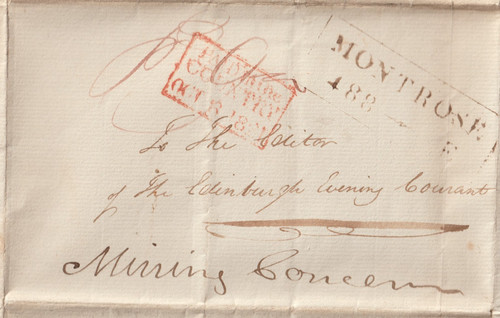 MONTROSE
188 E
OCT 8 18
To The Editor
of The Edinburgh Evening Courant
Mining Concern